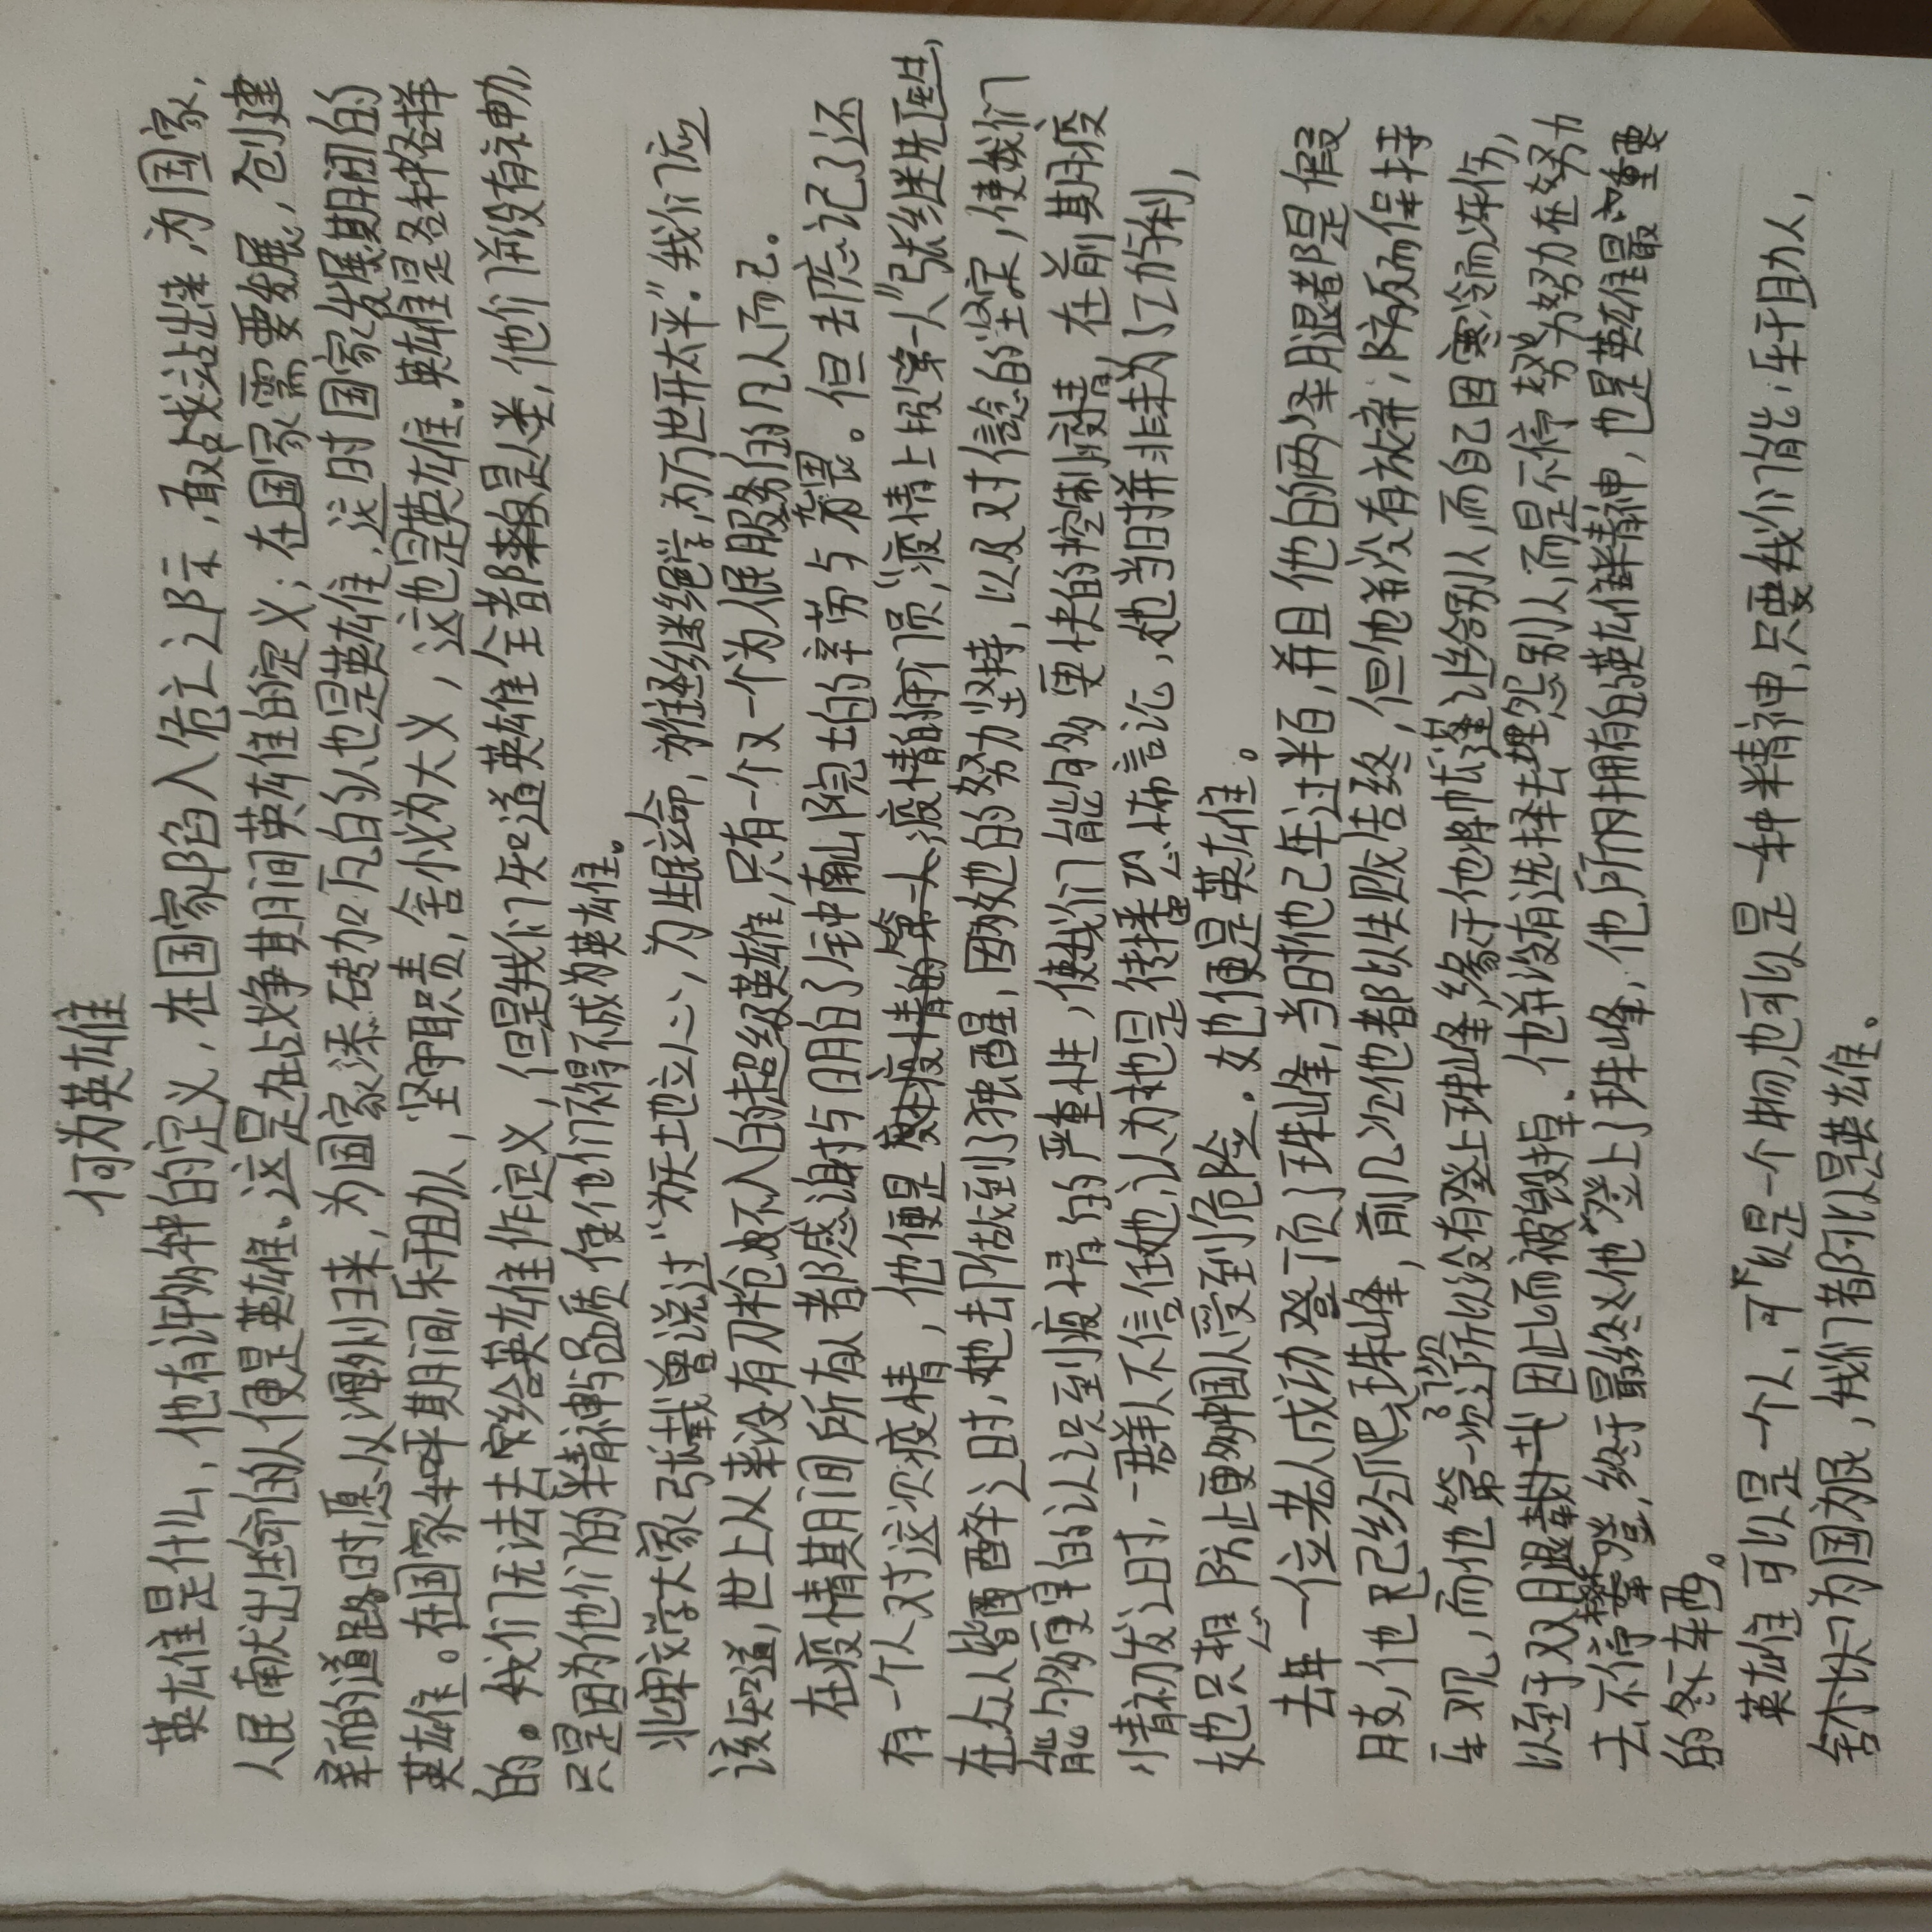 何为英雄
英雄是什么，他有许多种的定义，在国家陷入危亡之际，敢战站出来，为国家，
人民献出生命的人便是英雄。这是在战争其间英雄的定义；在国家需要发展，创建
新的道路时愿从海外归来，为国家添砖加瓦的人也是英雄，这时国家发展期间的
英雄。在国家和平期间，乐于助人，坚守职责，舍小我为大义，这也是英雄。英雄是各种各样
的。我们无法去给英雄作定义，但是我们知道英雄全都是人类，他们并没有神力，
只是因为他们的精神与品质使他们不得不成为英雄。
北宋文学大家张载曾说过“为天地立心，为生民立命，为往圣继绝学，为万世开太平。”我们应
该知道，世上从来没有刀枪不入的超级英雄，只有一个又一个为人民服务的凡人而已。
在疫情其间所有人都感谢与明白了钟南山院士的辛劳与无畏。但去忘记了还
有一个人对这次疫情，他便是疫情的闸门员，“疫情上报第一人”张继先医生，
在众人皆酉醉之时，她去所做到了独醒，因为她的努力坚持，以及对信念的坚定，使我们
能够更早的认识到疫情的严重性，使我们能够更快的控制疫情，在前期疫
情初发之时，一群人不信任她，认为她是传播恐怖言论，她当时并非未为了功利，
她只担心防止更多中国人受到危险。她便是英雄。
去年一位老人成功登顶了珠峰，当时他已年过半百，并且他的两条腿都是假
肢，他已经爬过珠峰，前几次他都以失败告终，但他并没有放弃，反而保持
乐观，而他第一次之所以没有登上珠峰，缘于他将帐篷让给别人，而自己因寒冷而冻伤，
以至于双腿截肢因此而被毁掉。他并没有选择去埋怨别人，而是不停努力努力在努力
去不停攀登，终于最终他登上了珠峰，他所拥有的英雄精神，也是英雄最重要
的东西。
英雄可以是一个人，可以是一个物，也可以是一种精神，只要我们能：乐于助人，
舍小以为国为民，我们都可以是英雄。